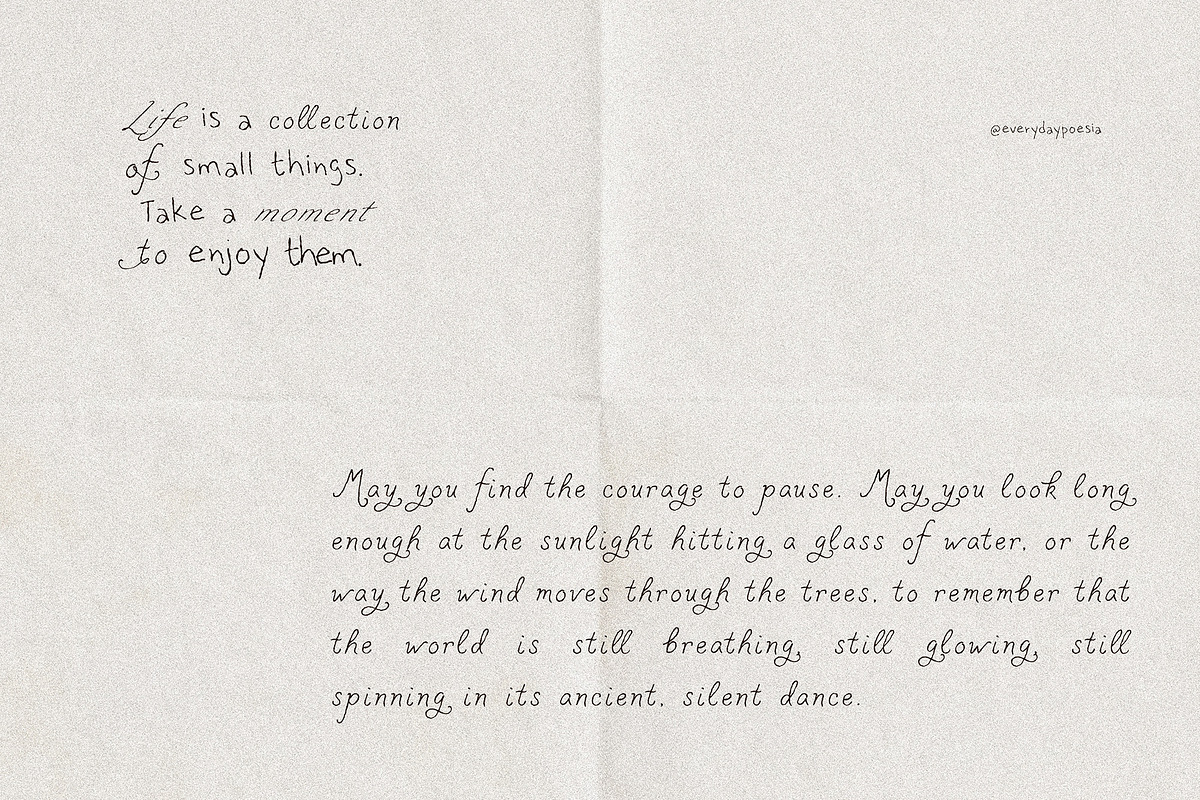 Life is a collection
of small things.
Take a moment
to enjoy them.
@everydaypoesia
May you find the courage to pause. May you look long
enough at the sunlight hitting a glass of water, or the
way the wind moves through the trees, to remember that
the world is still breathing, still glowing, still
spinning in its ancient, silent dance.